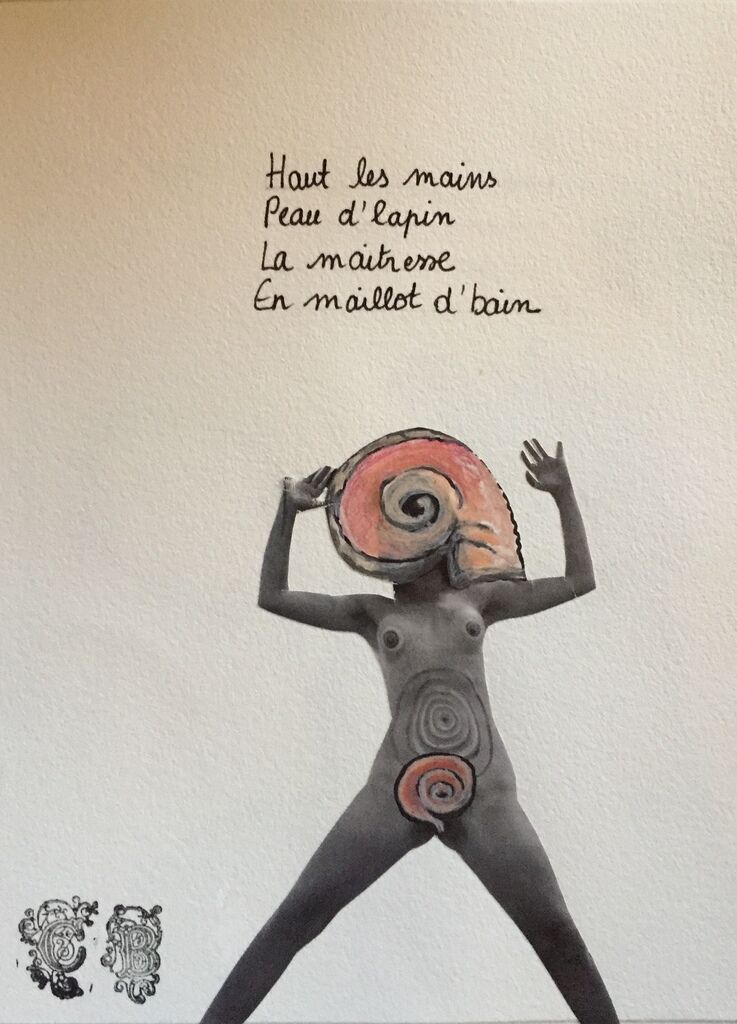 Haut les mains
Peau d'lapin
La maitresse
En maillot d'bain
C B